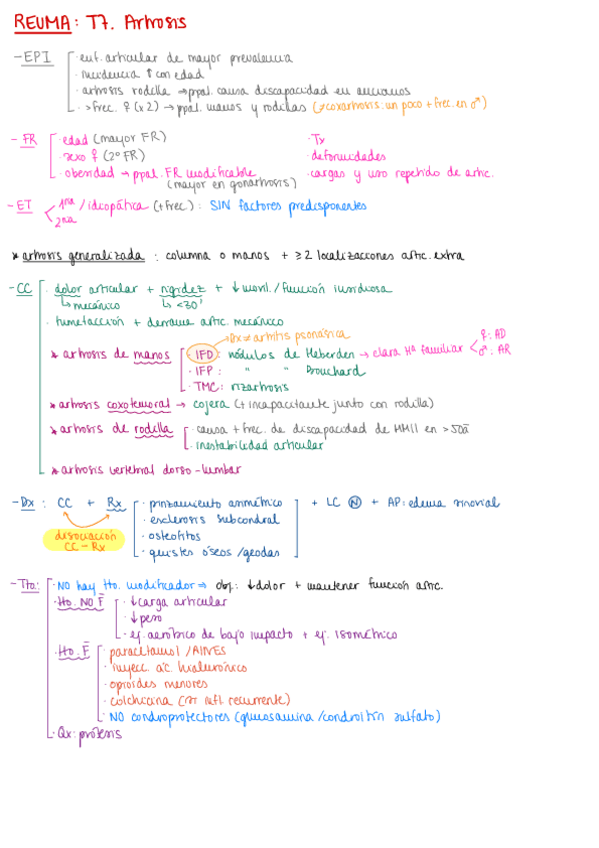 REUMA: T7. Artrosis
- EPI
· enf. articular de mayor prevalencia
· incidencia ↑ con edad
· artrosis rodilla → ppal. causa discapacidad en ancianos
· > frec. ♀ (x2) → ppal. manos y rodillas (≠ coxartrosis. un poco + frec. en ♂)
- FR
· edad (mayor FR)
· sexo ♀ (2º FR)
· obesidad → ppal. FR modificable
(mayor en gonartrosis)
· Tx
· deformidades
· cargas y uso repetido de artic.
- ET
1ria / idiopática (+ frec) : SIN factores predisponentes
2ria
* artrosis generalizada : columna o manos + ≥ 2 localizaciones artic. extra
- CC
· dolor articular + rigidez + ↓ movil. / función insidiosa
↳ mecánico ↳ < 30'
· tumefacción + derrame artic. mecánico
Dx ≠ artritis psoriásica
* artrosis de manos
· IFD : nódulos de Heberden → clara Hª familiar
♀: AD
♂: AR
· IFP : " " Bouchard
· TMC : rizartrosis
* artrosis coxofemoral → cojera (+ incapacitante junto con rodilla)
* artrosis de rodilla
· causa + frec. de discapacidad de MMII en > 50a
· inestabilidad articular
* artrosis vertebral dorso-lumbar
- Dx : CC + Rx
· pinzamiento asimétrico
· esclerosis subcondral
· osteofitos
· quistes óseos / geodas
+ LC N + AP: edema sinovial
disociación
CC - Rx
- Tto.:
· NO hay tto. modificador ⇒ obj: ↓ dolor + mantener función artic.
· tto. NO F
· ↓ carga articular
· ↓ peso
· ej. aeróbico de bajo impacto + ej. isométrico
· tto. F
· paracetamol / AINES
· inyecc. ác. hialurónico
· opioides menores
· colchicina (si infl. recurrente)
· NO condroprotectores (glucosamina / condroitín sulfato)
· Qx: prótesis